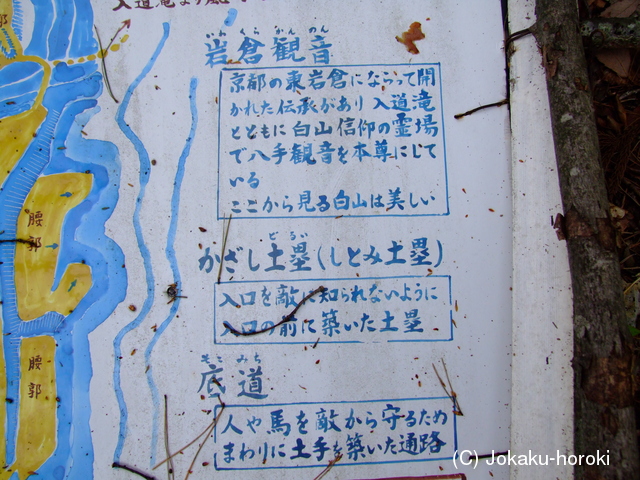 入道滝より
いわくらかんのん
岩倉観音
京都の東岩倉にならって開
かれた伝承があり 入道滝
とともに白山信仰の霊場
で八手観音を本尊にして
いる
ここから見る白山は美しい
どるい
かざし土塁(しとみ土塁)
入口を敵に知られないように
入口の前に築いた土塁
そこみち
底道
人や馬を敵から守るため
まわりに土手を築いた通路
腰郭
腰郭
(C) Jokaku-horoki